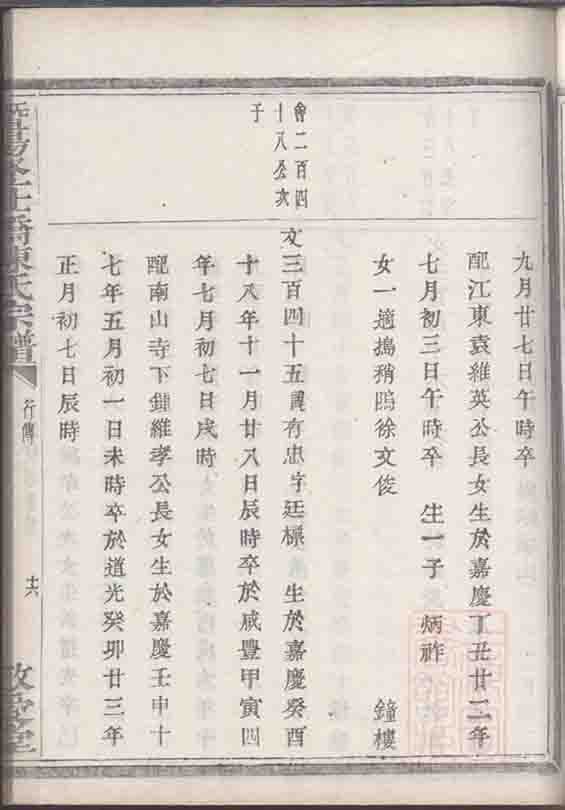 九月廿七日午時卒
配江東袁維英公長女生於嘉慶丁丑廿二年
七月初三日午時卒　生一子　炳祚
女一適搗稍塢徐文俊　鐘樓
會二百四
十八公次
子
文三百四十五諱有忠字廷標　生於嘉慶癸酉
十八年十一月廿八日辰時卒於咸豐甲寅四
年七月初七日戌時
配南山寺下鍾維孝公長女生於嘉慶壬申十
七年五月初一日未時卒於道光癸卯廿三年
正月初七日辰時
橋陳氏宗譜
行傳
十六